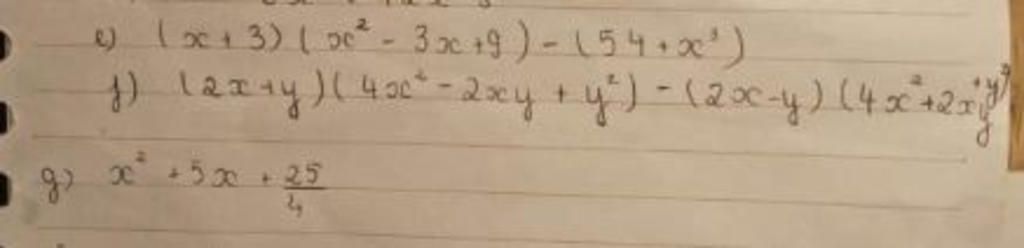 e) (x + 3)(x² - 3x + 9) - (54 + x³)
f) (2x + y)(4x² - 2xy + y²) - (2x - y)(4x² + 2xy + y²)
g) x² + 5x + 25/4